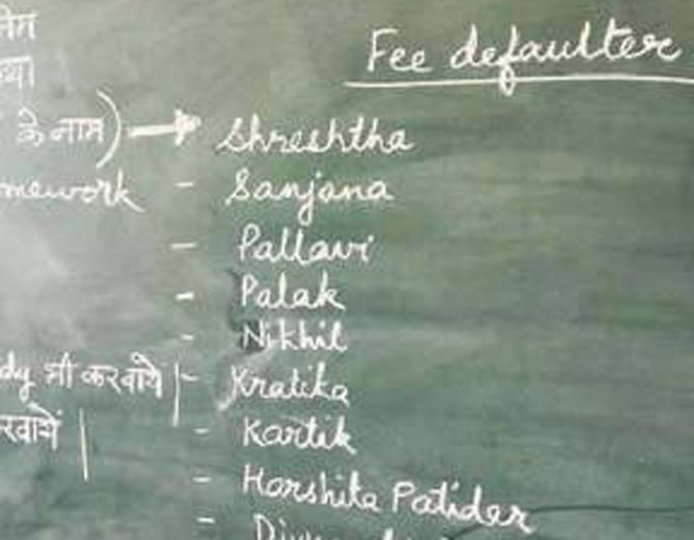 Fee defaulter
के नाम) → Shreshtha
mework - Sanjana
- Pallavi
- Palak
- Nikhil
dy भी करवाये | - Kratika
- Kartik
- Harshita Patider